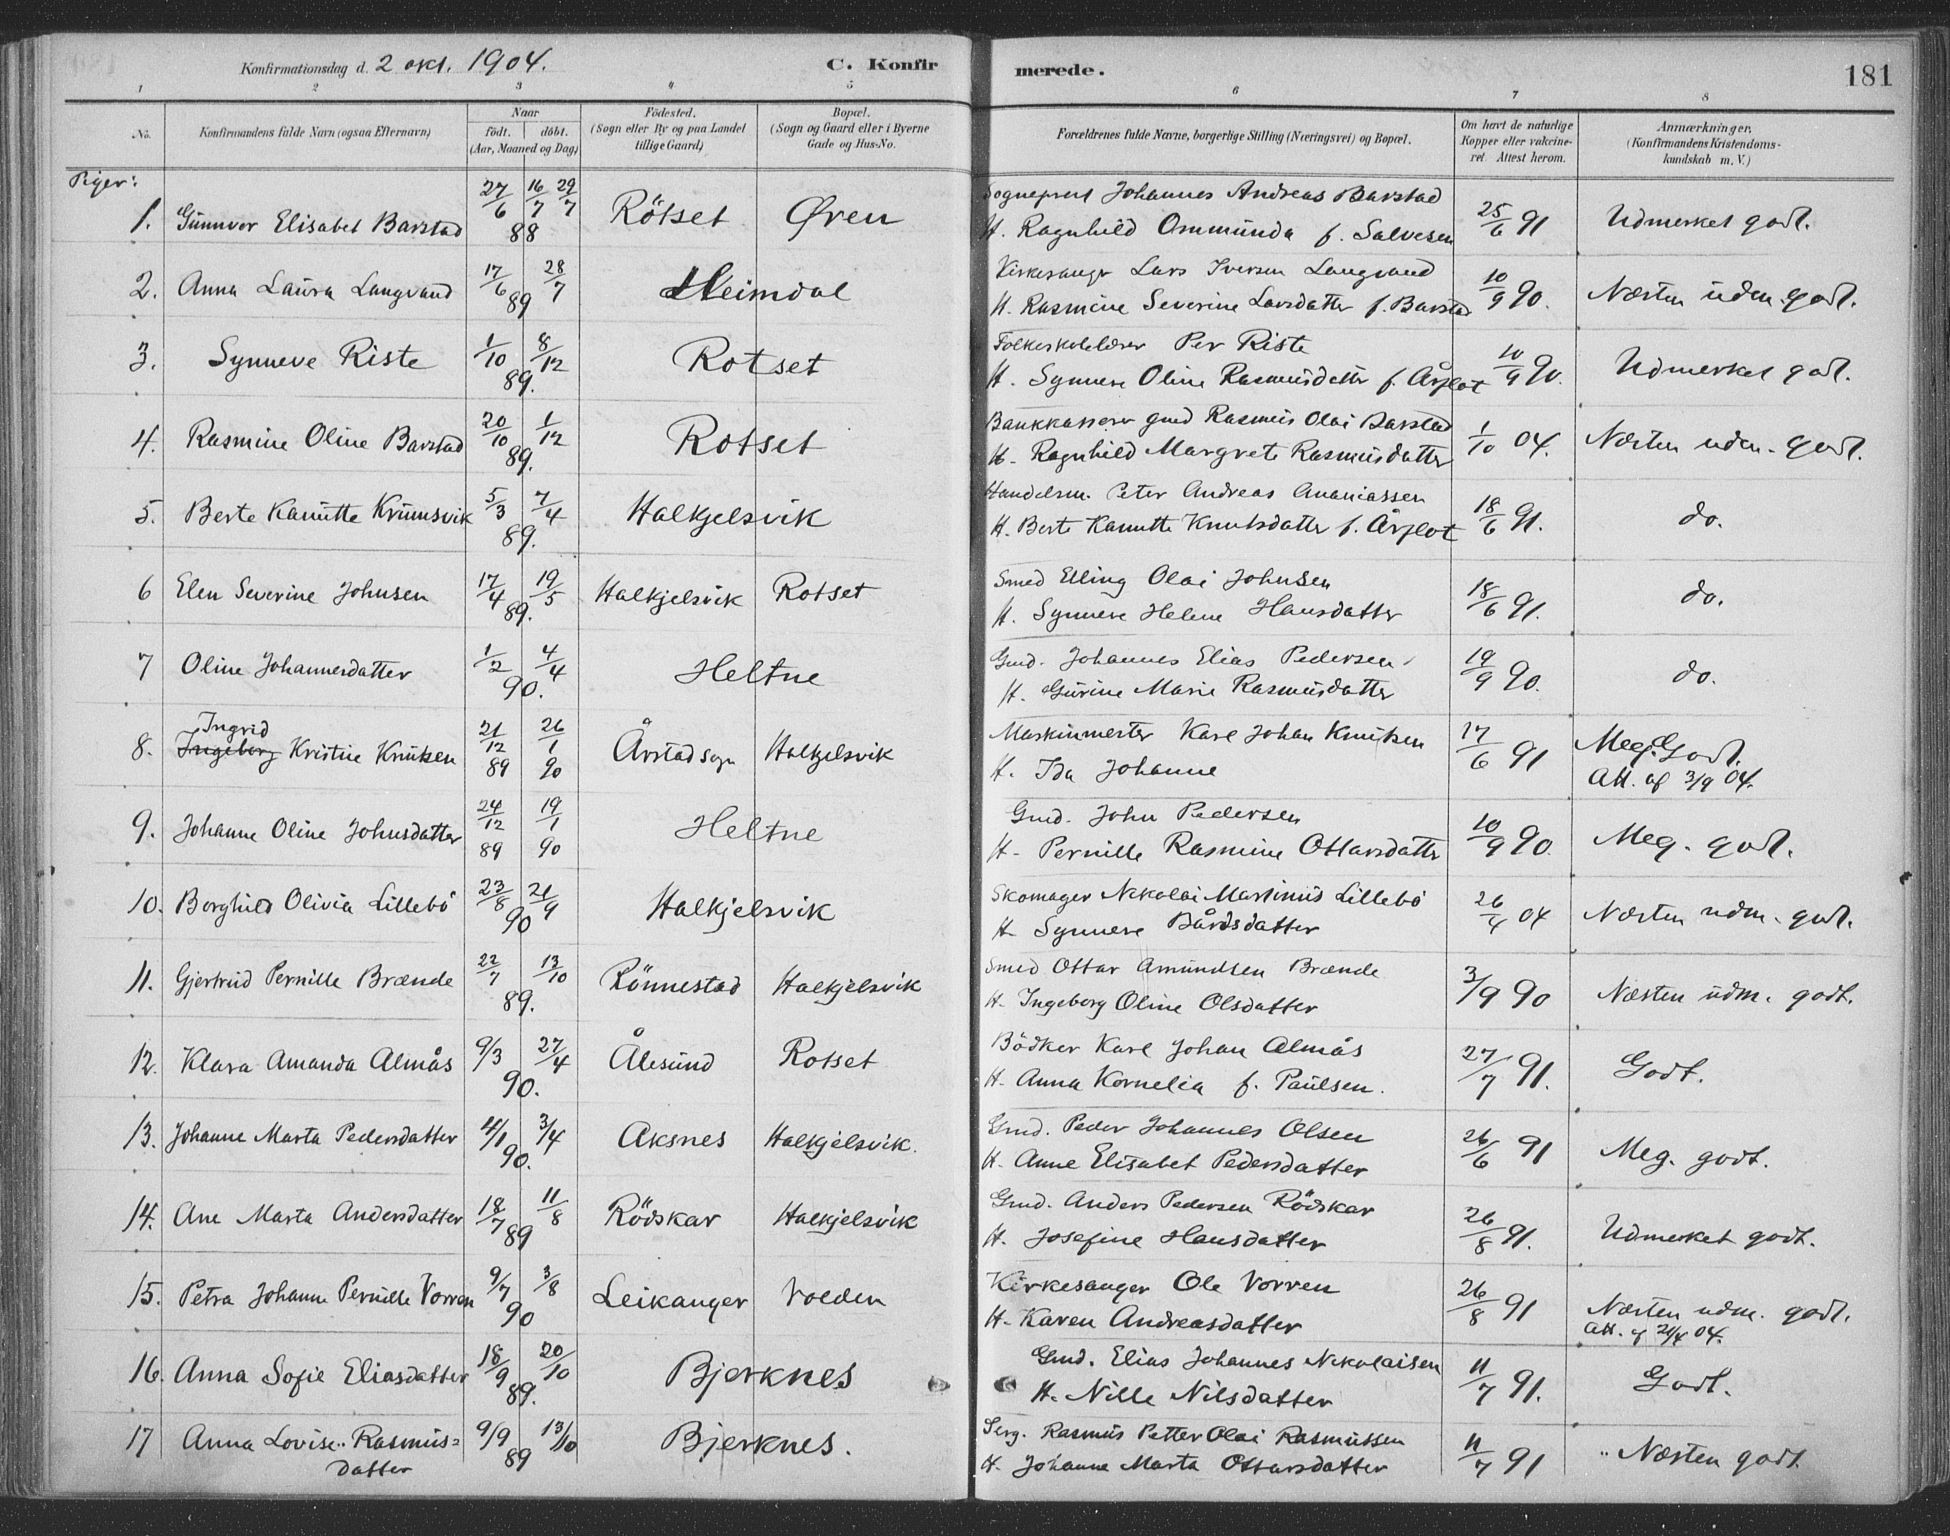 Konfirmationsdag d. 2 okt. 1904. C. Konfirmerede. 181
1 2 3 4 5 6 7 8
No. Konfirmandens fulde Navn (ogsaa Efternavn) Naar født. døbt. (Aar, Maaned og Dag) Fødested. (Sogn eller By og paa Landet tillige Gaard) Bopæl. (Sogn og Gaard eller i Byerne Gade og Hus-No. Forældrenes fulde Navne, borgerlige Stilling (Næringsvei) og Bopæl. Om havt de naturlige Kopper eller vakcineret Attest herom. Anmærkninger. (Konfirmandens Kristendomskundskab m. V.)
Piger:
1. Gunnvor Elisabet Barstad 27/6 88 16/7 29/7 Rötset Øren Sogneprest Johannes Andreas Barstad
H. Ragnhild Ommunda f. Salvesen 25/6 91 Udmerket godt.
2. Anna Laura Langvand 17/6 89 28/7 Heimdal Kirkesanger Lars Iversen Langvand
H. Rasmine Severine Larsdatter f. Barstad 10/9 90. Næsten udm. godt.
3. Synneve Riste 1/10 89. 8/12 Rotset Folkeskolelærer Per Riste
H. Synneve Oline Rasmusdatter f. Årflot 10/9 90. Udmerket godt.
4. Rasmine Oline Barstad 20/10 89. 1/12 Rotset Bankkasserer gmd Rasmus Olai Barstad
H. Ragnhild Margrete Rasmusdatter 1/10 04. Næsten udm. godt.
5. Berte Kanutte Krumsvik 5/3 89. 7/4 Halkjelsvik Handelsm. Peter Andreas Ananiassen
H. Berte Kanutte Knutsdatter f. Årflot 18/6 91. do.
6 Elen Severine Johnsen 17/4 89. 19/5 Halkjelsvik Rotset Smed Elling Olai Johnsen
H. Synnere Helene Hansdatter 18/6 91. do.
7 Oline Johannesdatter 1/2 90. 4/4 Heltne Gmd. Johannes Elias Pedersen
H. Gurine Marie Rasmusdatter 19/9 90. do.
8. Ingrid
Ingeborg Kristine Knutsen 21/12 89 26/1 90 Årstad sogn Halkjelsvik Maskinmester Karl Johan Knutsen
H. Ida Johanne 17/6 91 Meg. Godt.
Att. af 3/9 04.
9. Johanne Oline Johnsdatter 24/12 89 19/1 90 Heltne Gmd. John Pedersen
H. Pernille Rasmine Ottarsdatter 10/9 90. Meg. godt.
10. Borghild Olivia Lillebö 23/8 90 21/9 Halkjelsvik Skomager Nikolai Martinus Lillebö
H. Synnere Bårdsdatter 26/4 04 Næsten udm. godt.
11. Gjertrud Pernille Brænde 22/7 89. 13/10 Rönnestad Halkjelsvik Smed Ottar Amundsen Brænde
H. Ingeborg Oline Olsdatter 3/9 90 Næsten udm. godt.
12. Klara Amanda Almås 9/3 90. 27/4 Ålesund Rotset Bödker Karl Johan Almås
H. Anna Kornelia f. Paulsen. 27/7 91. Godt.
13. Johanne Marta Pedersdatter 4/1 90. 3/4 Aksnes Halkjelsvik. Gmd. Peder Johannes Olsen
H. Anne Elisabet Pedersdatter 26/6 91 Meg. godt.
14. Ane Marta Andersdatter 18/7 89 11/8 Rödskar Halkjelsvik Gmd. Anders Pedersen Rödskar
H. Josefine Hansdatter 26/8 91. Udmerket godt.
15. Petra Johanne Pernille Vorren 9/7 90 3/8 Leikanger Volden Kirkesanger Ole Vorren
H. Karen Andreasdatter 26/8 91 Næsten udm. godt.
Att. af 21/4 04.
16. Anna Sofie Eliasdatter 18/9 89. 20/10 Bjerknes Gmd. Elias Johannes Nikolaisen
H. Nille Nilsdatter 11/7 91. Godt.
17 Anna Lovise Rasmus=
datter 9/9 89 13/10 Bjerknes. Serg. Rasmus Petter Olai Rasmussen
H. Johanne Marta Ottarsdatter 11/7 91 Næsten godt.